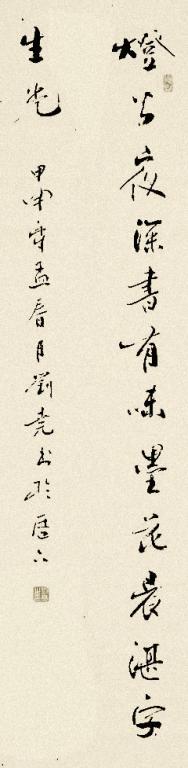 燈公夜深書有味墨花晨湛字
生光
甲申年孟春月劉堯書於歷下